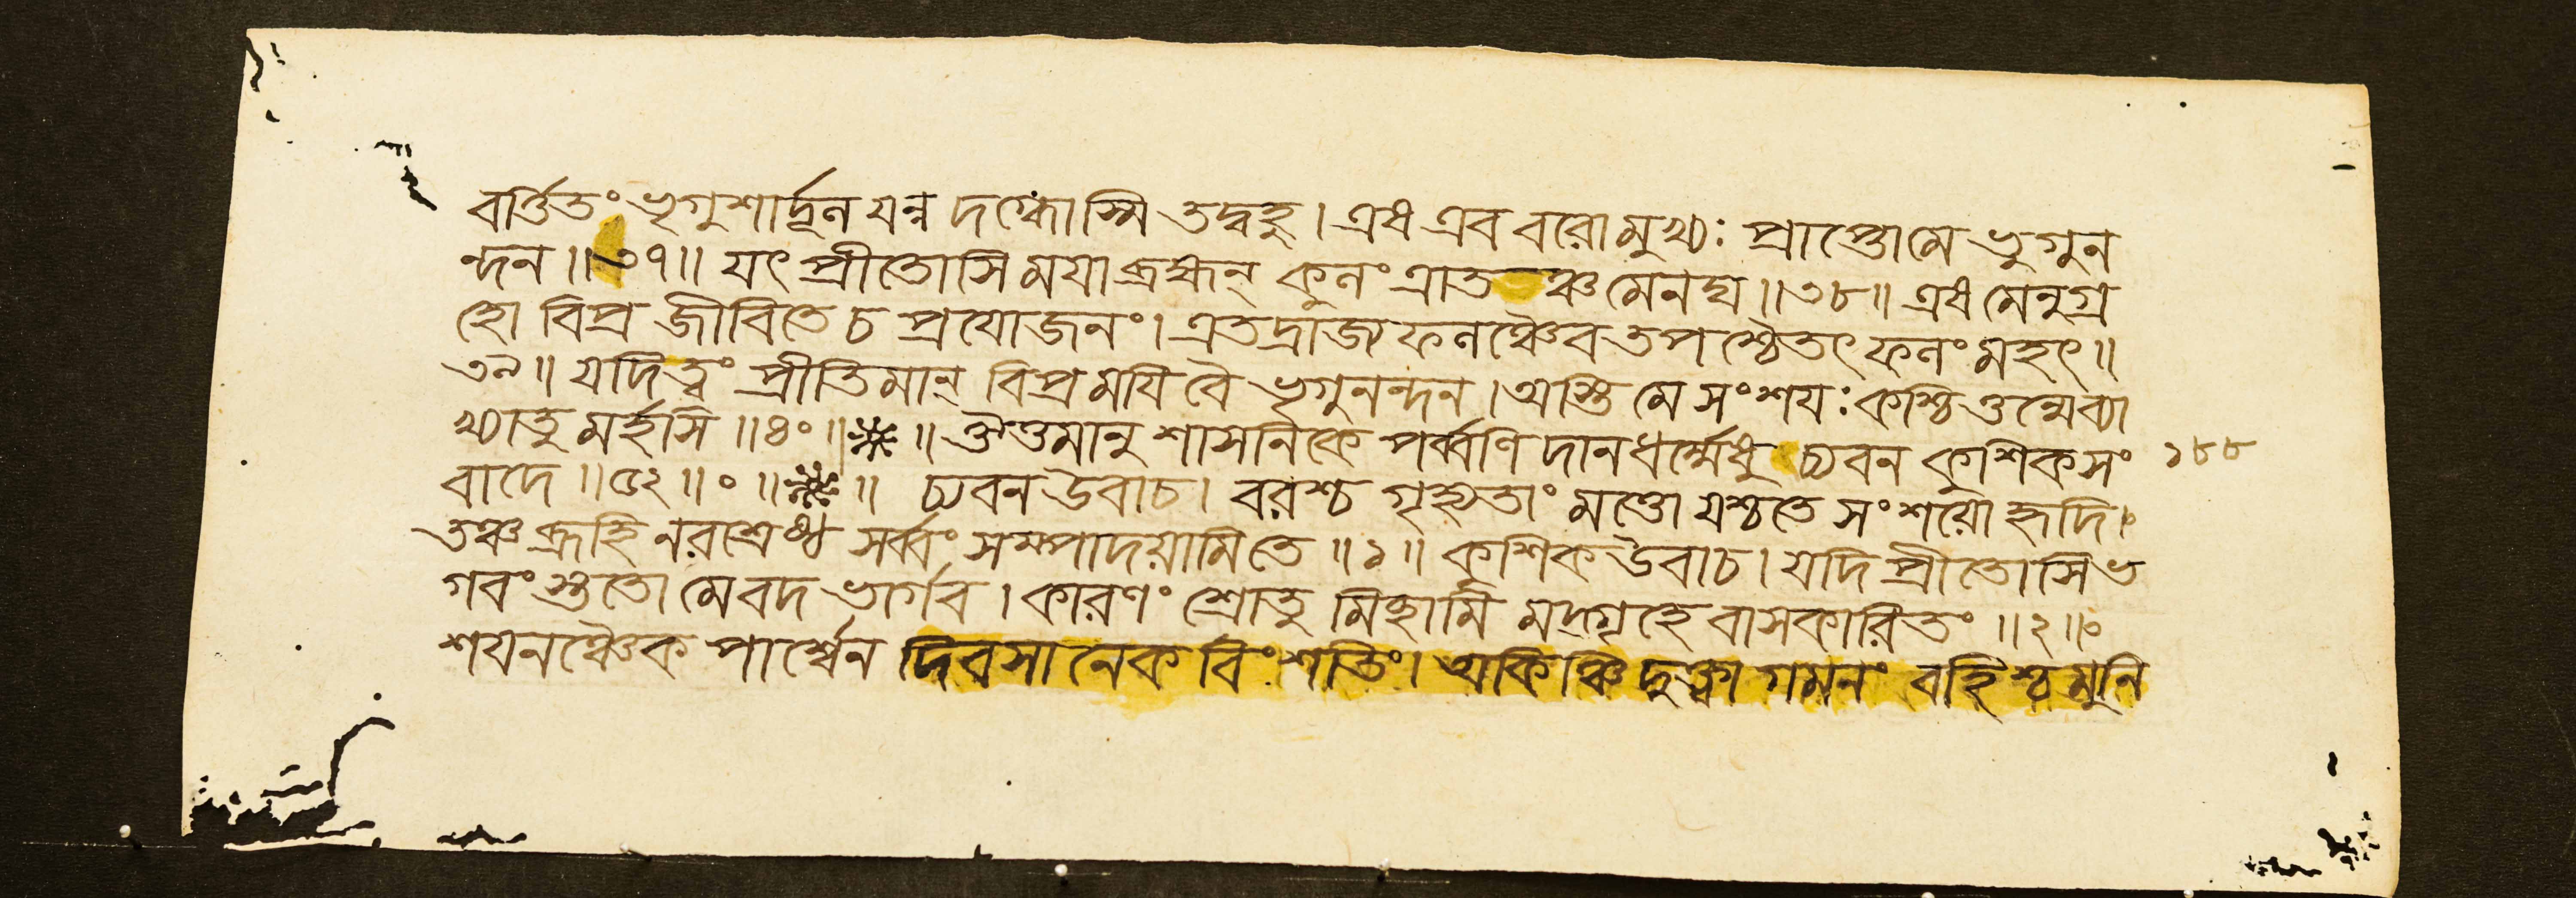 বর্ত্তিতং ভৃগুশার্দ্দূল যন্ন দগ্ধোস্মি তদ্বহু। এষ এব বরো মুখ্যঃ প্রাপ্তো মে ভৃগুন
ন্দন॥৩৭॥ যৎ প্রীতোসি ময়া ব্রহ্মন্ কুলং ত্রাতঞ্চ মেনঘ॥৩৮॥ এষ মেনুগ্র
হো বিপ্র জীবিতে চ প্রযোজনং। এতদ্রাজ্যফলঞ্চৈব তপশ্চৈতৎ ফলং মহৎ॥
৩৯॥ যদি ত্বং প্রীতিমান্ বিপ্র ময়ি বৈ ভৃগুনন্দন। অস্তি মে সংশয়ঃ কশ্চিত্তন্মে ব্যা
খ্যাতুমর্হসি॥৪০॥ ॥ ঔত্তমানুশাসনিকে পর্ব্বণি দানধর্ম্মেষু চ্যবন কুশিকসং
বাদে॥৫২॥০॥ ॥ চ্যবন উবাচ। বরশ্চ গৃহ্যতাং মত্তো যশ্চ তে সংশয়ো হৃদি।
তঞ্চ ব্রূহি নরশ্রেষ্ঠ সর্ব্বং সম্পাদয়ামি তে॥১॥ কুশিক উবাচ। যদি প্রীতোসি ভ
গবংস্ততো মে বদ ভার্গব। কারণং শ্রোতুমিচ্ছামি মদ্গৃহে বাসকারিতং॥২॥
শয়নঞ্চৈকপার্শ্বেন দিবসানেকবিংশতিং। অকিঞ্চিদুক্ত্বা গমনং বহিশ্চ মুনি
১৮৮